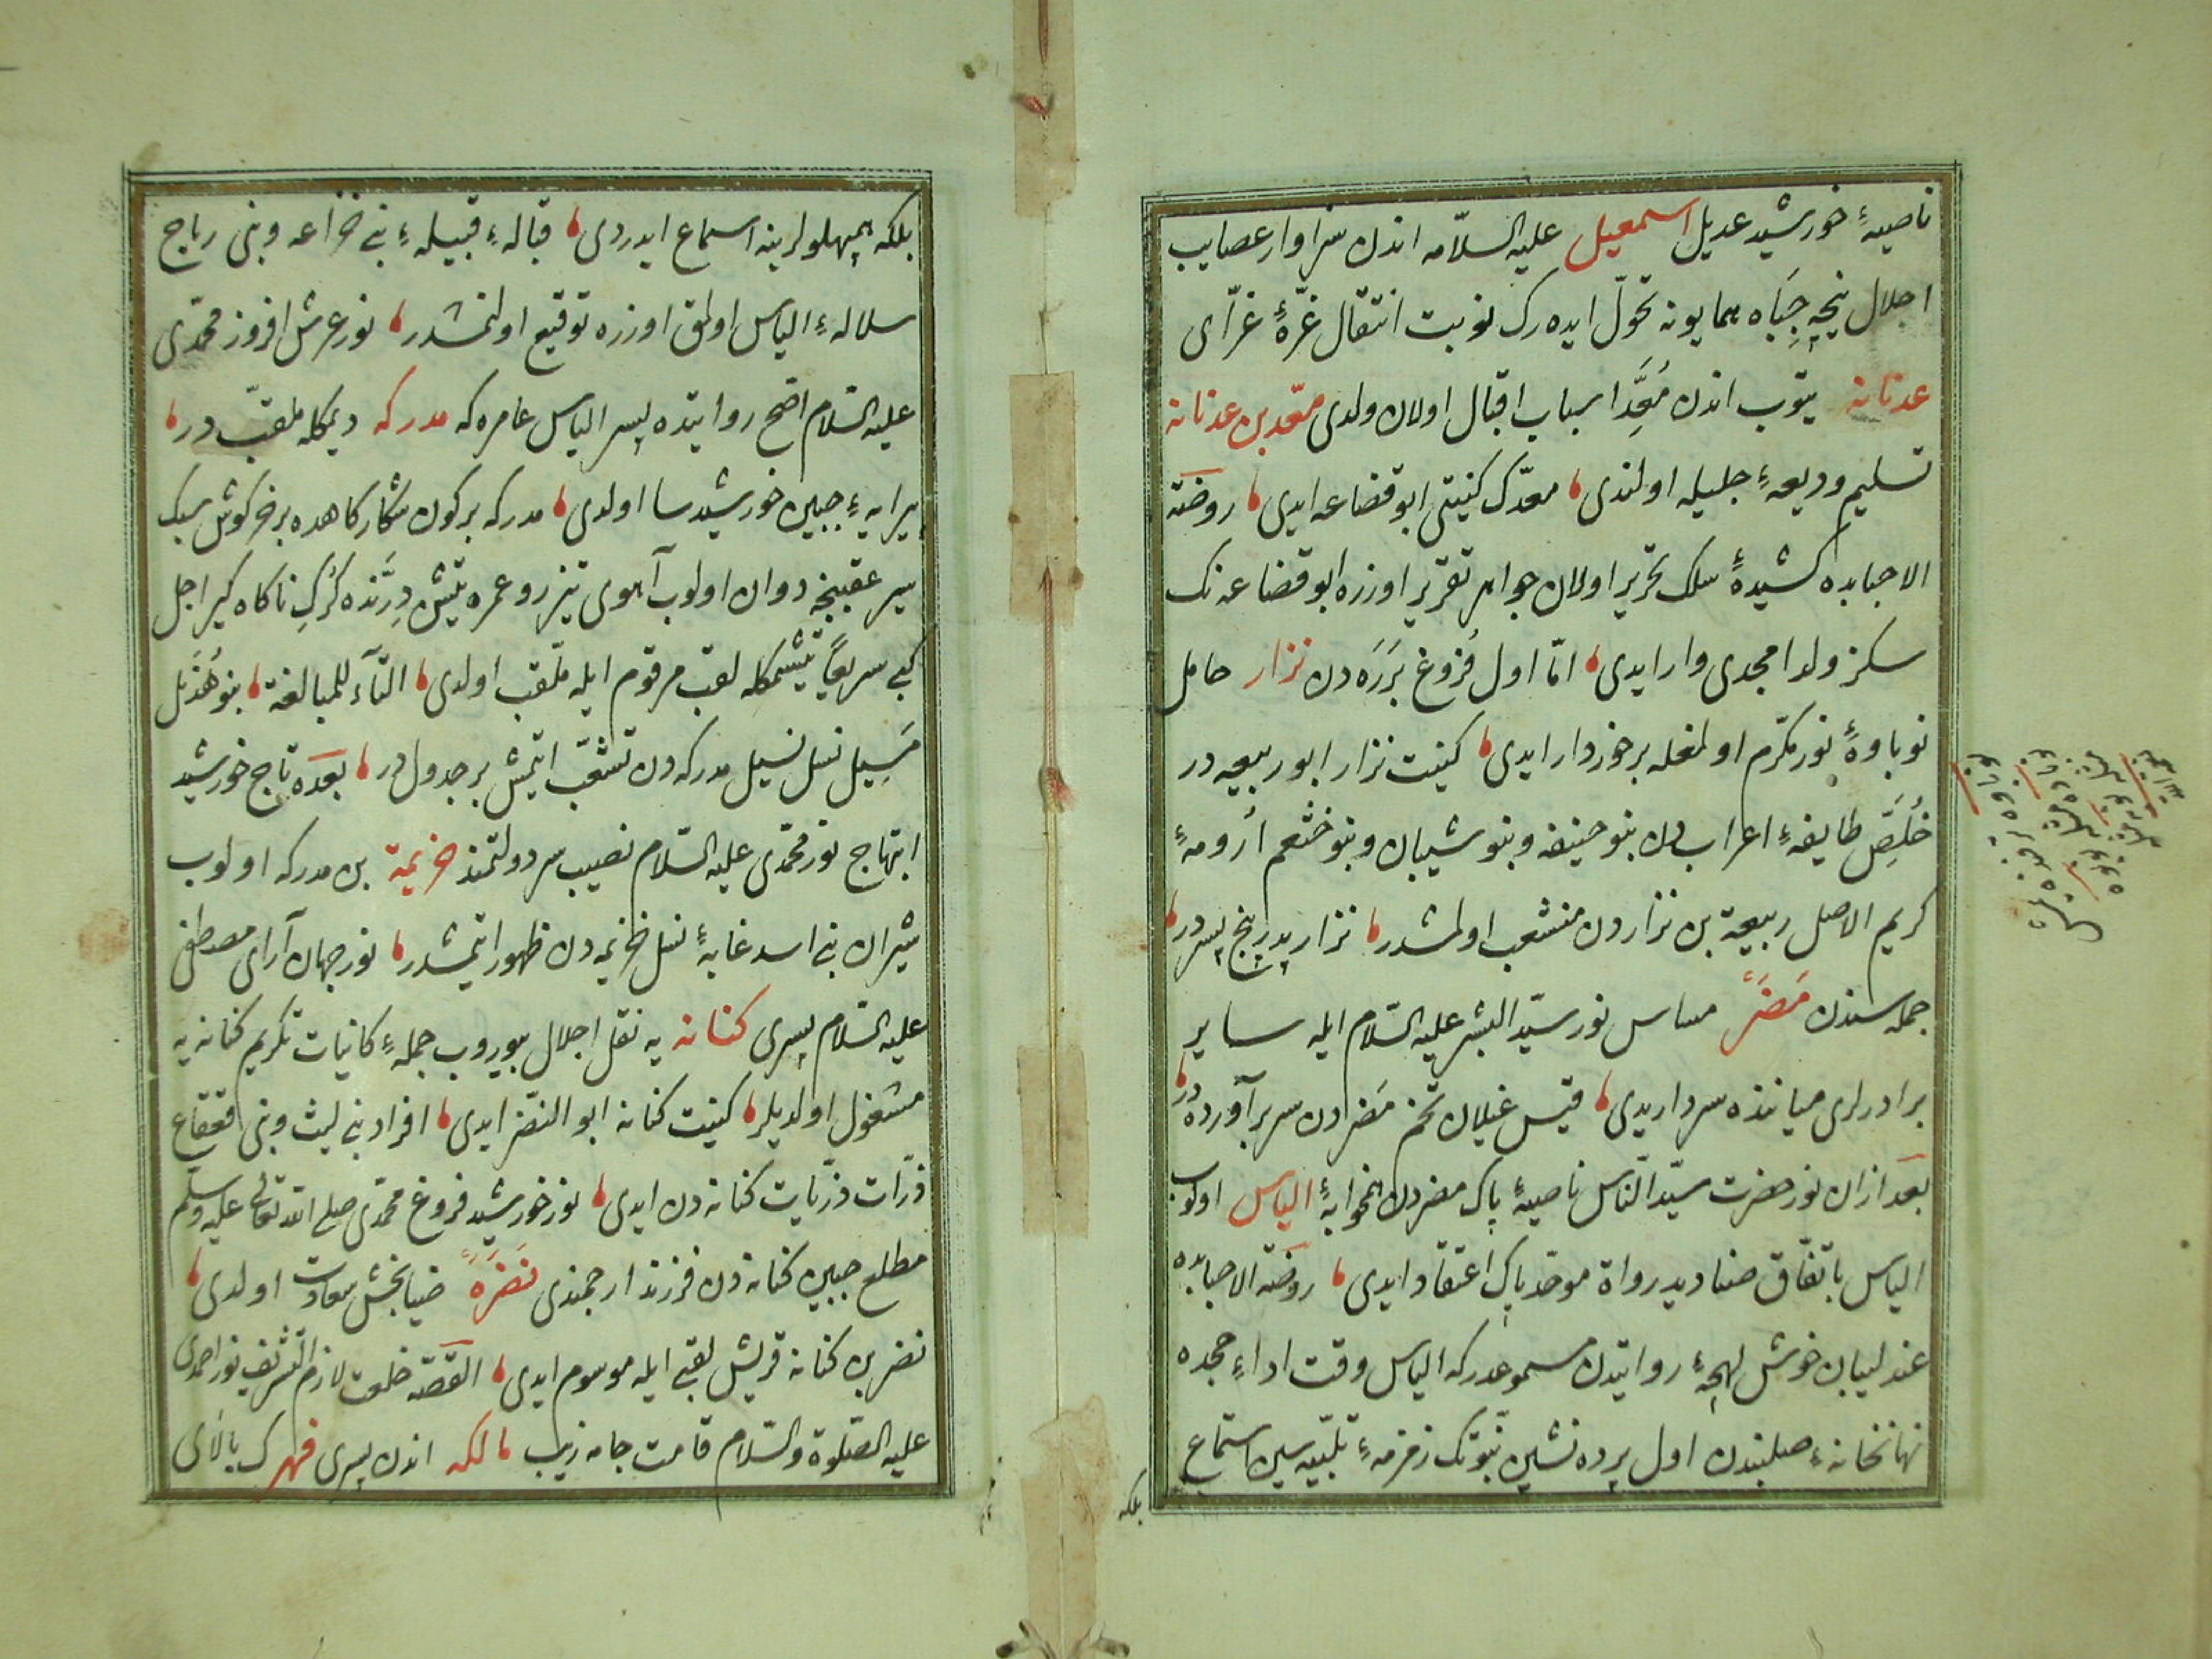 ناصیهٔ خورشید عدیل اسمعیل علیه السلامه اندن سزاوار عصایب
اجلال نیچه جباه همایونه تحوّل ایده رک نوبت انتقال غرّهٔ غرّای
عدنانه یتوب اندن مُعَدِّ اسباب اقبال اولان ولدی معد بن عدنانه
تسلیم ودیعهٔ جلیله اولندی معدک کنیتی ابو قضاعه ایدی روضة
الاحبابده کشیدهٔ سلک تحریر اولان جواهر تقریر اوزره ابو قضاعه نک
سکز ولد امجدی وار ایدی امّا اول فُروغ بَرَرَه دن نزار حامل
نوباوهٔ نور مکرّم اولمغله برخوردار ایدی کنیت نزار ابو ربیعه در
خُلَّص طایفهٔ اعراب دن بنو حنیفه وبنو شیبان وبنو خثعم اُرومهٔ
کریم الاصل ربیعة بن نزاردن منشعب اولمشدر نزار پدر پنج پسر در
جمله سندن مُضَرْ مساس نور سیّد البشر علیه السّلام ایله سایر
برادرلری میاننده سردار یدی قیس غیلان تخم مَضَردن سر برآورده در
بعد ازان نور حضرت سیّد النّاس ناصیهٔ پاک مضردن همخوابهٔ الیاس اولوب
الیاس باتفاق صنادید رواة موحّد پاک اعتقاد ایدی روضة الاحبابده
عندلیبان خوش لهجهٔ روایتدن مسموعدر که الیاس وقت اداءِ حجده
نهانخانهٔ صلبندن اول پرده نشین نبوّتک زمزمهٔ تلبیه سین استماع
بلکه
بلکه همپهلولرینه اسماع ایدردی قبالهٔ قبیلهٔ بنی خزاعه وبنی رباح
سلالهٔ الیاس اولمق اوزره توقیع اولنمشدر نور عرش افروز محمّدی
علیه السّلام اصحّ روایتده پسر الیاس عامره که مدرکه دیمکله ملقّب در
پیرایهٔ جبین خورشید سا اولدی مدرکه بر کون شکارکاهده بر خرکوش سبک
سیر عقبنجه دوان اولوب آهوی تیز رو عمره یتیش دِرَّنده کُرکِ ناکاه کیر اجل
کبی سریعاً یتیشمکله لقب مرقوم ایله ملقّب اولدی التّآء للمبالغة بنو هُذَیل
مَسِیل نسل نسیل مدرکه دن تشعّب ایتمش بر جدول در بعده تاج خورشید
ابتهاج نور محمّدی علیه السّلام نصیب سر دولتمند خزیمة بن مدرکه اولوب
شیران بنی اسد غابهٔ نسل خزیمه دن ظهور ایتمشدر نور جهان آرای مصطفی
علیه السّلام پسری کنانه یه نقل اجلال بیوروب جملهٔ کاینات تکریم کنانه یه
مشغول اولدیلر کنیت کنانه ابو النّضر ایدی افراد بنی لیث وبنی قعقاع
ذرّات ذرّیات کنانه دن ایدی نور خورشید فروغ محمّدی صلی الله تعالی علیه وسلّم
مطلع جبین کنانه دن فرزند ارجمندی نَضَرَه ضیابخش سعادت اولدی
نضر بن کنانه قریش لقبی ایله موسوم ایدی القصّه خلعت لازم التشریف نور احمدی
علیه الصّلوة والسّلام قامت جامه زیب مالکه اندن پسری فهرک بالای